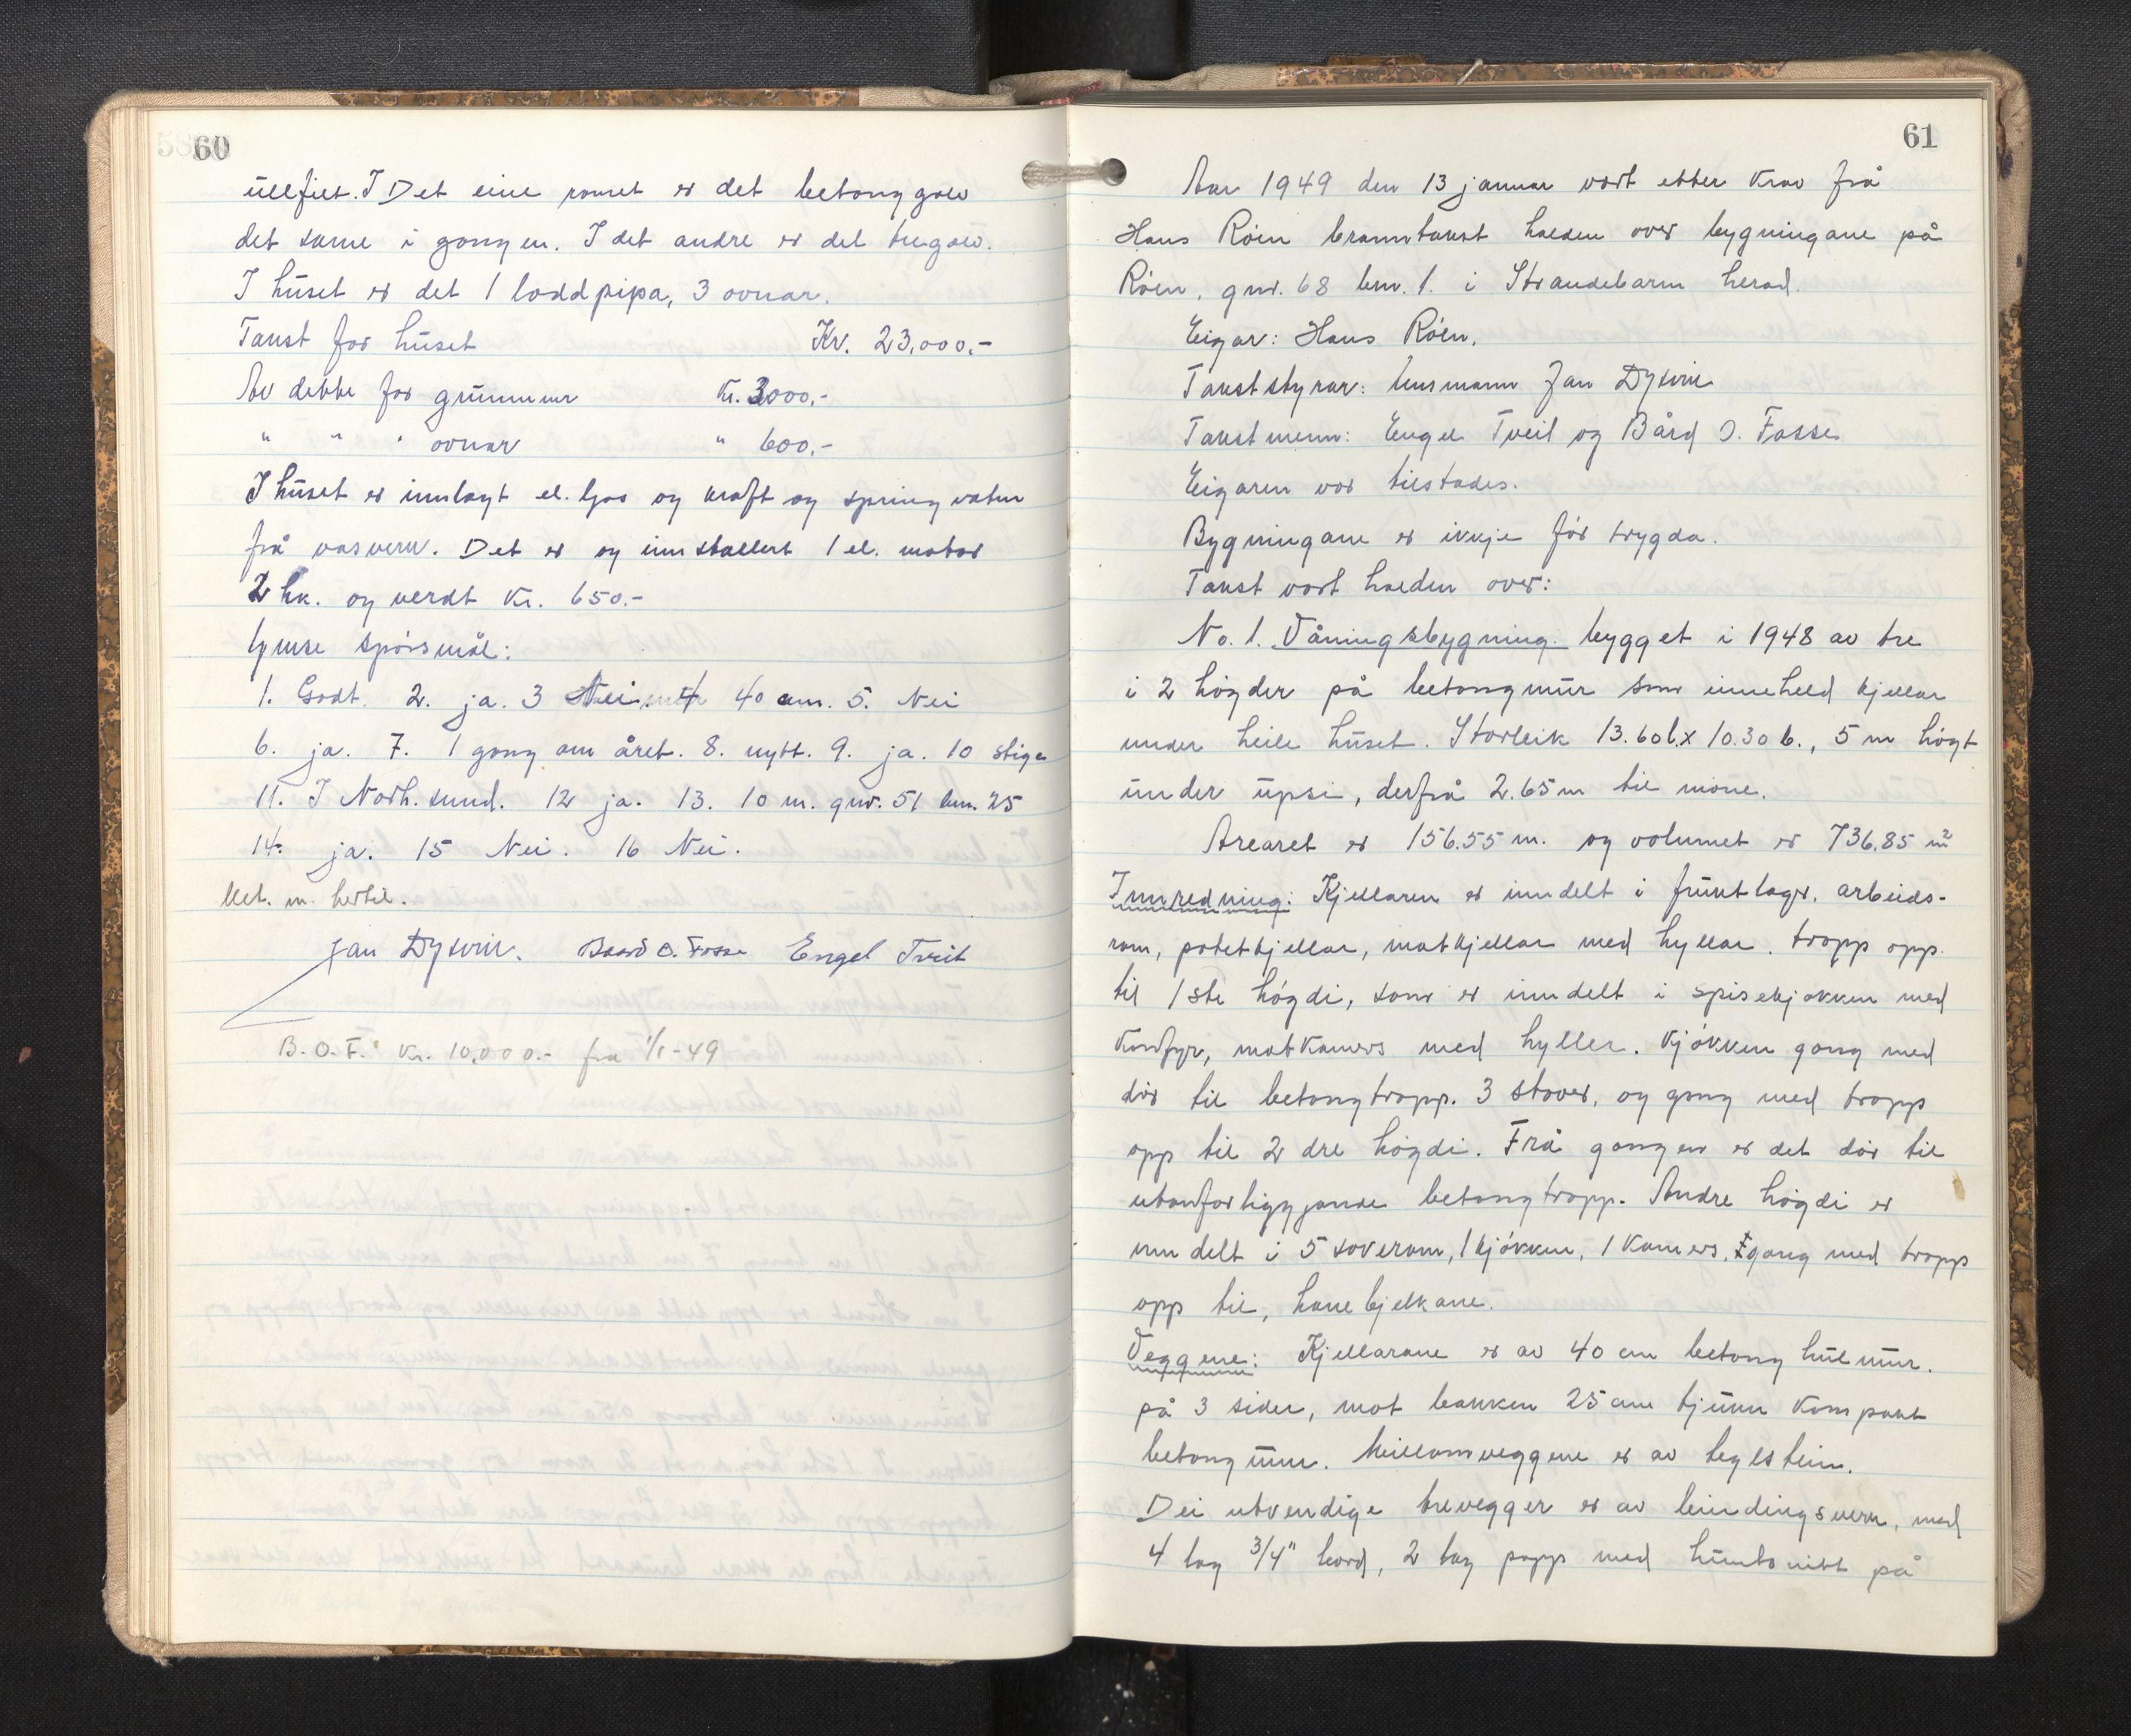 60
ullfilt. I Det eine romet er det betonggolv
det same i gongen. I det andre er det tregolv.
I huset er det 1 loddpipa, 3 ovnar.
Takst for huset Kr. 23,000.-
Av dette for grunnmur Kr. 3000.-
" " " ovnar " 600.-
I huset er innlagt el. ljos og kraft og springvatn
frå vasverk. Det er og innstallert 1 el. motor
2 hk. og verdt kr. 650.-
Ymse spörsmål:
1. Godt. 2. ja. 3 Nei. 4 40 cm. 5. Nei
6. ja. 7. 1 gong om året. 8. nytt. 9. ja. 10 stige
11. I Norh.sund. 12 ja. 13. 10 m. gnr. 51 bnr. 25
14. ja. 15 Nei. 16 Nei.
m. hertil.
Jan Dysvik. Baard O. Fosse Engel Tveit
B.O.F. Kr. 10,000.- fra 1/1-49
61
Aar 1949 den 13 januar vart etter krav frå
Hans Röen branntakst halden over bygningane på
Röen, gnr. 68 bnr. 1. i Strandebarm herad.
Eigar: Hans Röen.
Takststyrar: lensmann Jan Dysvik
Takstmenn: Engel Tveit og Bård O. Fosse
Eigaren var tilstades.
Bygningane er ikkje för trygda.
Takst vart halden over:
No. 1. Våningsbygning. bygget i 1948 av tre
i 2 högder på betongmur som inneheld kjellar
under heile huset. Storleik 13.60 l. x 10.30 b., 5 m högt
under upsi, derfrå 2.65 m til möne.
Arearet er 156.55 m. og volumet er 736,85 m2
Innredning: Kjellaren er inndelt i fruktlagr, arbeids-
rom, potetkjellar, matkjellar med hyllar. tropp opp
til 1ste högdi, som er inndelt i spisekjøkken med
komfyr, matkamers med hyller. Kjökken gong med
dör til betongtropp. 3 stover, og gong med tropp
opp til 2 dre högdi. Frå gongen er det dör til
utanforliggjande betongtropp. Andre högdi er
inndelt i 5 soverom, 1 kjökken, 1 kamers, gang med tropp
opp til, hanebjelkane.
Veggene: Kjellarane er av 40 cm betong hulmur.
på 3 sider, mot bakken 25 cm tjukk kompakt
betongmur. Millomveggene er av teglstein.
Dei utvendige trevegger er av bindingsverk, med
4 lag 3/4" bord, 2 lag papp med huntonitt på